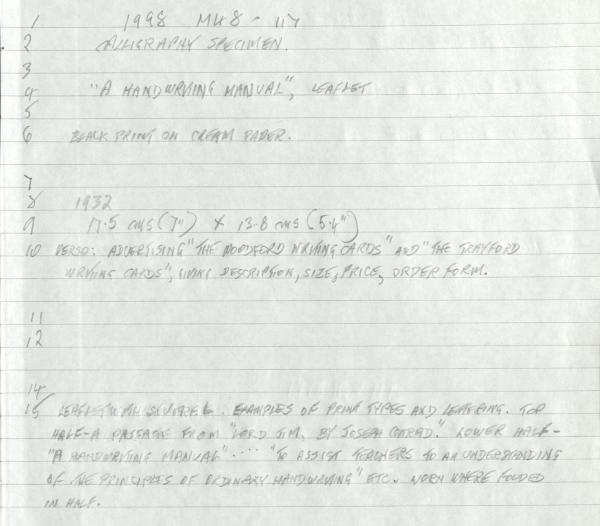 1 1998 MH8 - 117
2 CALLIGRAPHY SPECIMEN.
3
4 "A HANDWRITING MANUAL", LEAFLET
5
6 BLACK PRINT ON CREAM PAPER.
7
8 1932
9 17.5 cms (7") x 13.8 cms (5.4")
10 VERSO: ADVERTISING "THE WOODFORD WRITING CARDS" AND "THE TRAYFORD
WRITING CARDS", GIVING DESCRIPTION, SIZE, PRICE, ORDER FORM.
11
12
14
15 LEAFLET WITH EXAMPLES OF PRINT TYPES AND LETTERING. TOP
HALF - A PASSAGE FROM "LORD JIM, BY JOSEPH CONRAD." LOWER HALF -
"A HANDWRITING MANUAL" .... "TO ASSIST TEACHERS TO AN UNDERSTANDING
OF THE PRINCIPLES OF ORDINARY HANDWRITING" ETC. WORN WHERE FOLDED
IN HALF.